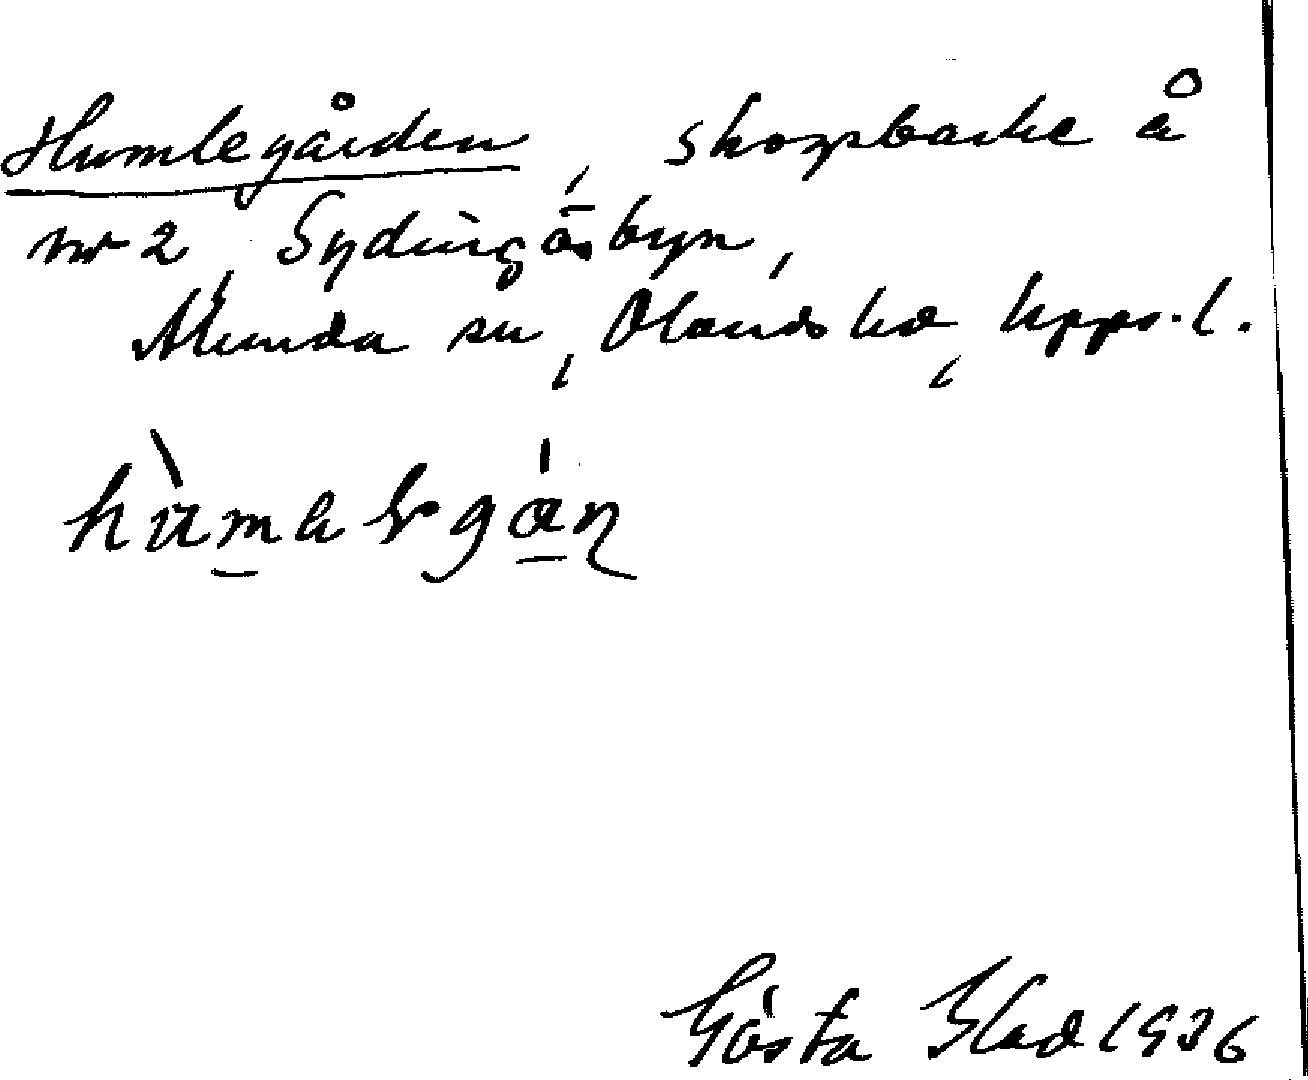 Humlegården, skogsbacke å
nr 2, Sydingåsbyn,
Alunda sn, Olands hd, Upps. l.
Gösta Blad 1936